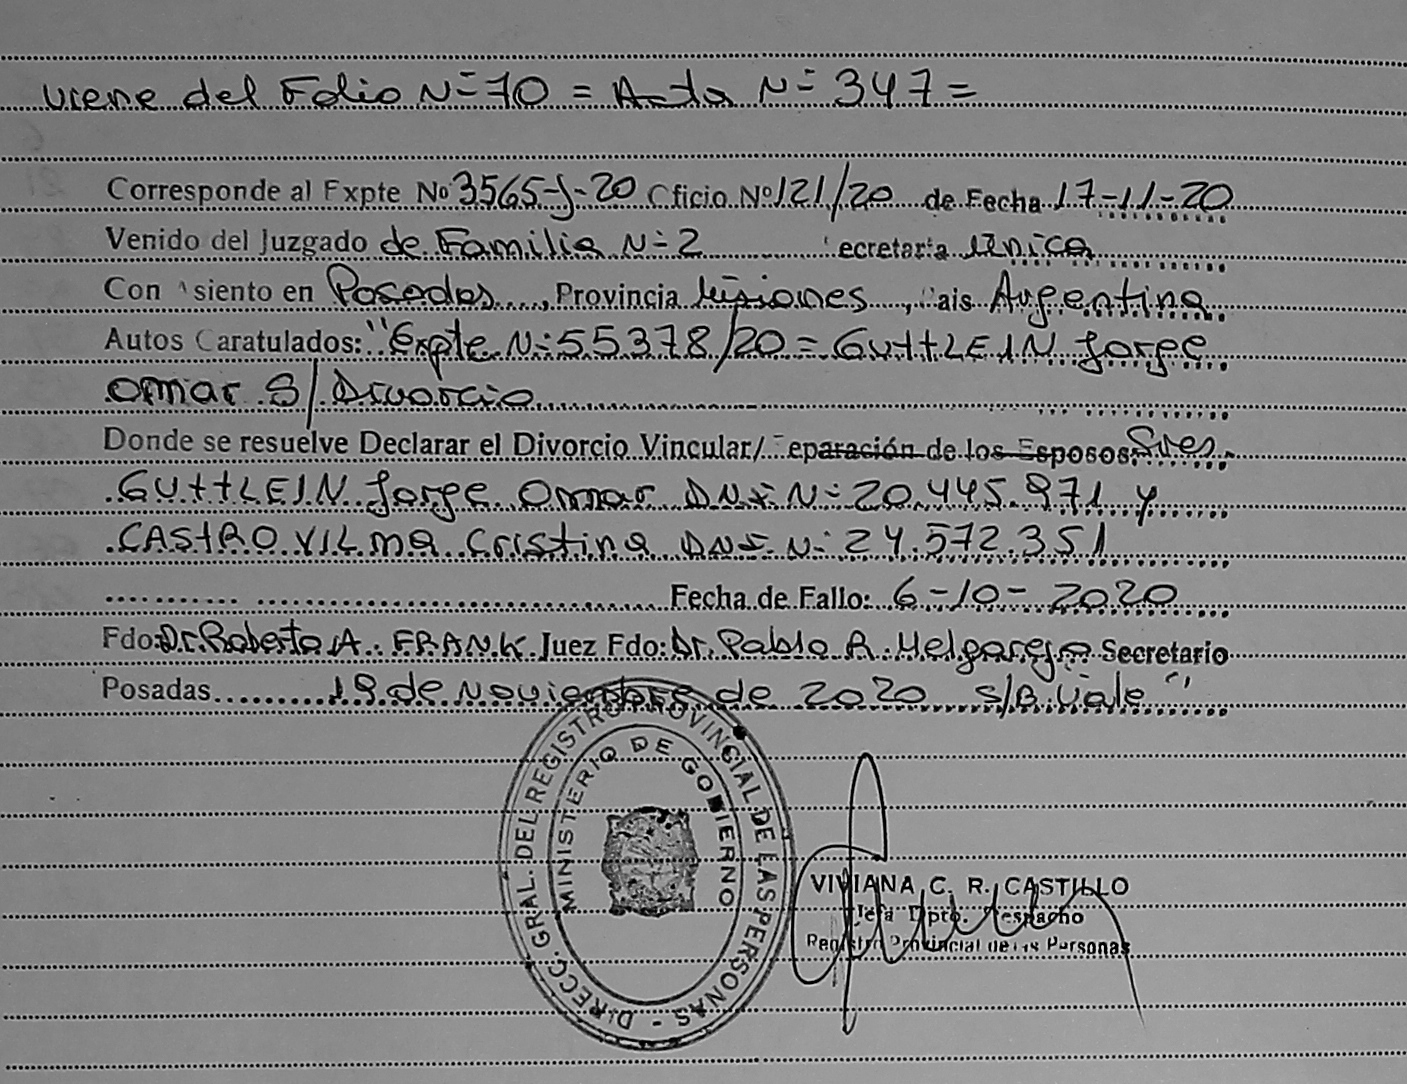 viene del Folio Nº 70 = Acta Nº 347 =
Corresponde al Expte Nº 3565-J-20 Oficio Nº 121/20 de Fecha 17-11-20
Venido del Juzgado de Familia Nº 2 Secretaria Unica
Con Asiento en Posadas, Provincia Misiones, Pais Argentina
Autos Caratulados: "Expte Nº 55378/20 = GUttLEIN Jorge
Omar S/ Divorcio
Donde se resuelve Declarar el Divorcio Vincular/ Separación de los Esposos Sres.
GUttLEIN Jorge Omar DNI Nº 20.445.971 y
CAStRO VILma Cristina DNI Nº 24.572.351
Fecha de Fallo: 6-10-2020
Fdo: Dr. Roberto A. FRANK Juez Fdo: Dr. Pablo R. Melgarejo Secretario
Posadas 19 de Noviembre de 2020 S/B Vale"
DIRECC. GRAL. DEL REGISTRO PROVINCIAL DE LAS PERSONAS -
MINISTERIO DE GOBIERNO
VIVIANA C. R. CASTILLO
Jefa Dpto. Despacho
Registro Provincial de las Personas